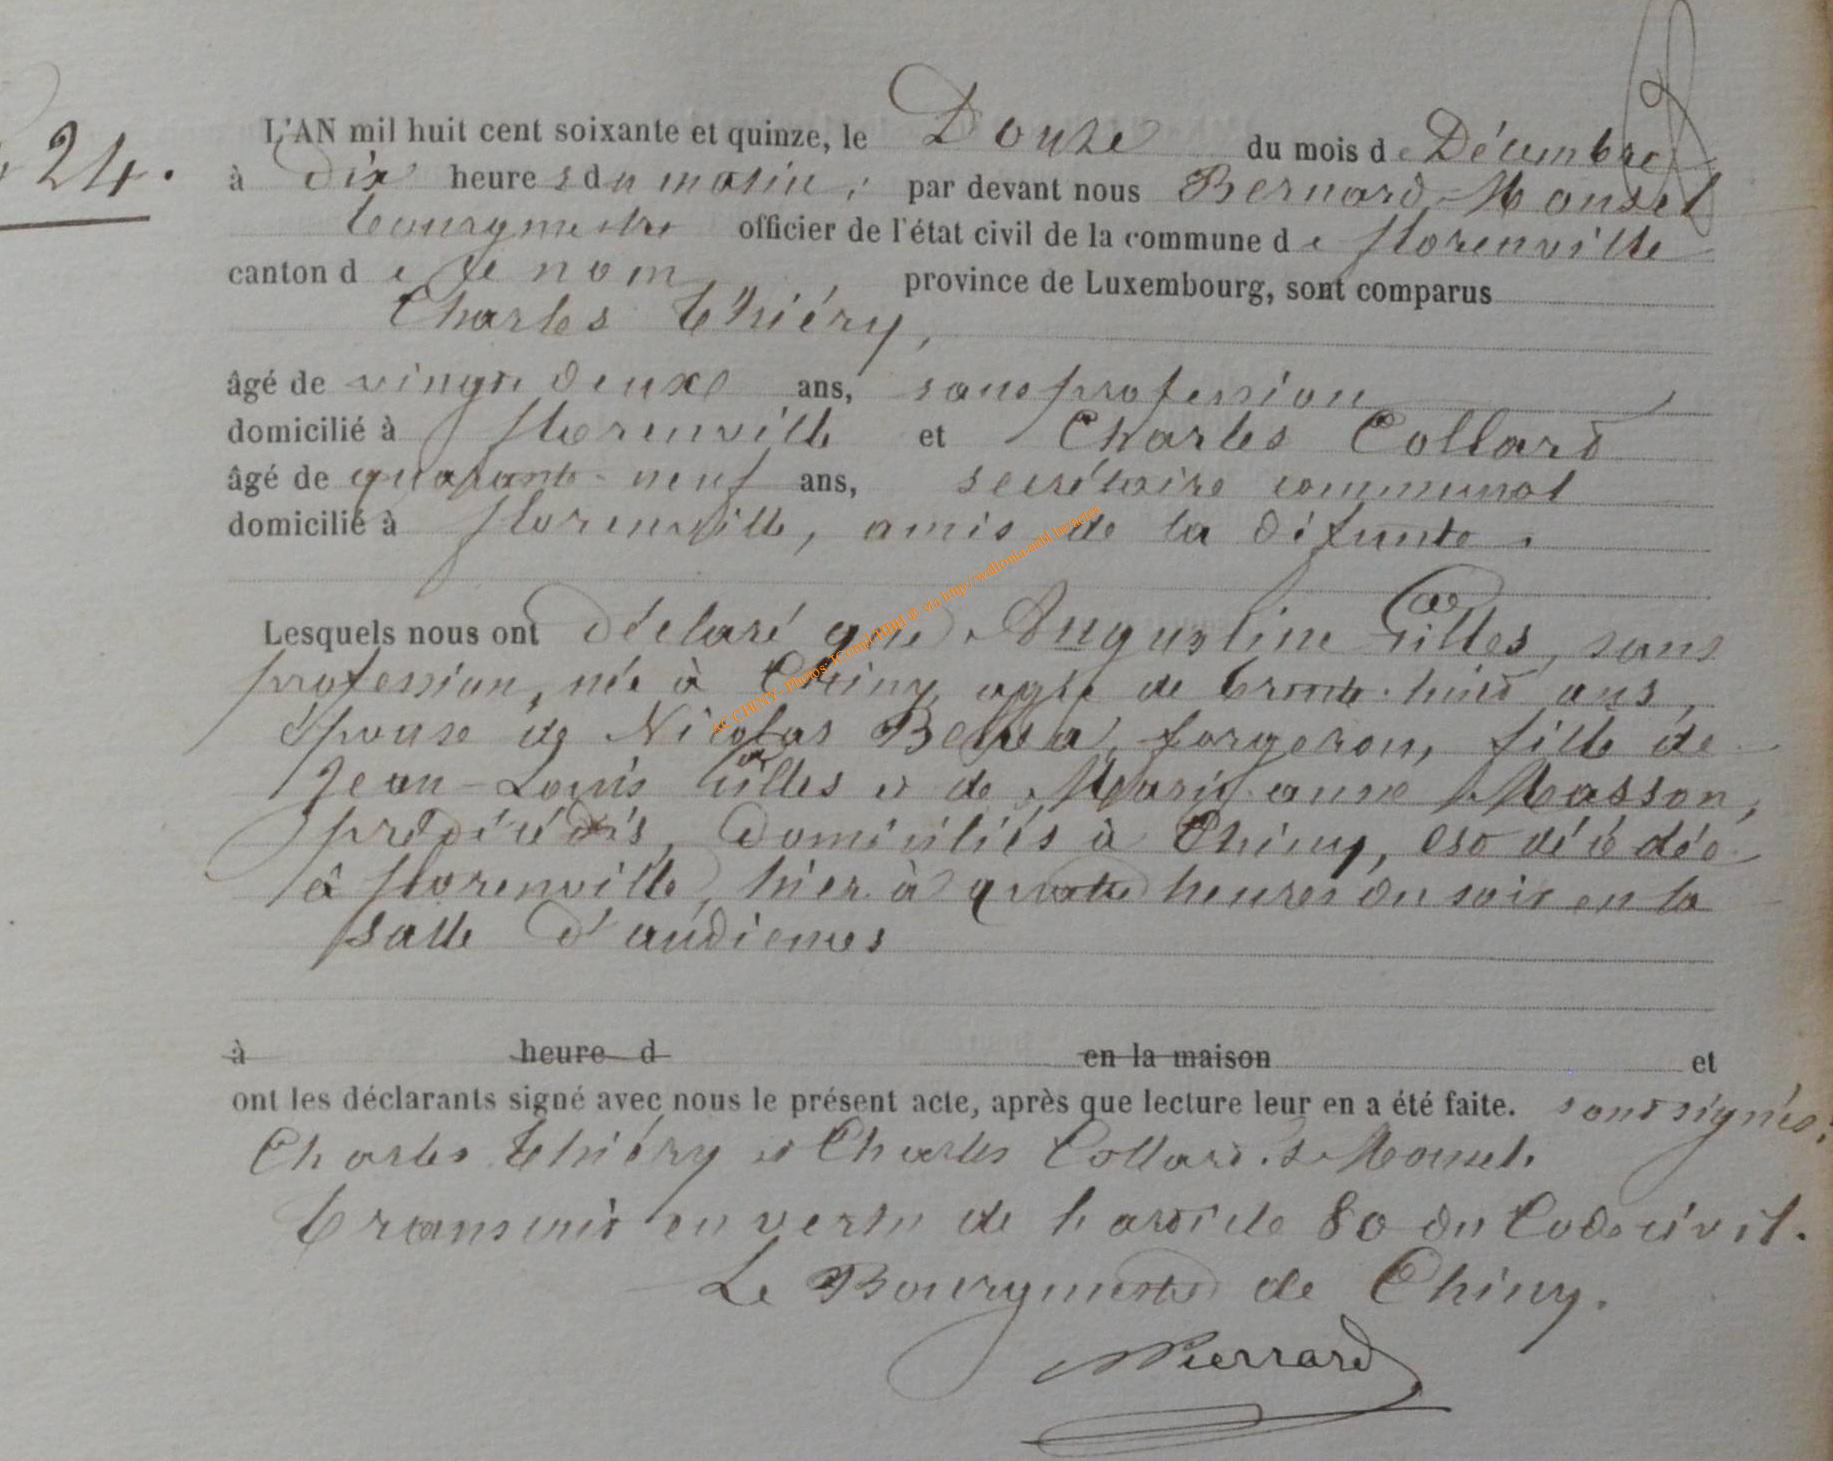 24.
L'AN mil huit cent soixante et quinze, le Douze du mois de Décembre
à dix heures du matin, par devant nous Bernard Mousel
bourgmestre officier de l'état civil de la commune de florenville
canton de ce nom province de Luxembourg, sont comparus
Charles Thiéry,
âgé de vingt deux ans, sans profession,
domicilié à florenville et Charles Collard
âgé de quarante-neuf ans, secrétaire communal
domicilié à florenville, amis de la défunte.
Lesquels nous ont déclaré que Augustine Gilles, sans
profession, née à Chiny, agée de trente-huit ans,
épouse de Nicolas forgeron, fille de
Jean-Louis Gilles et de Marie anne Masson,
prédécédés, domiciliés à Chiny, est décédée
à florenville, hier à quatre heures du soir en la
salle d'audiences
à heure d en la maison et
ont les déclarants signé avec nous le présent acte, après que lecture leur en a été faite. sont signés:
Charles Thiéry et Charles Collard. Mousel.
Transcrit en vertu de l'article 80 du Code civil.
Le Bourgmestre de Chiny.
Pierrard